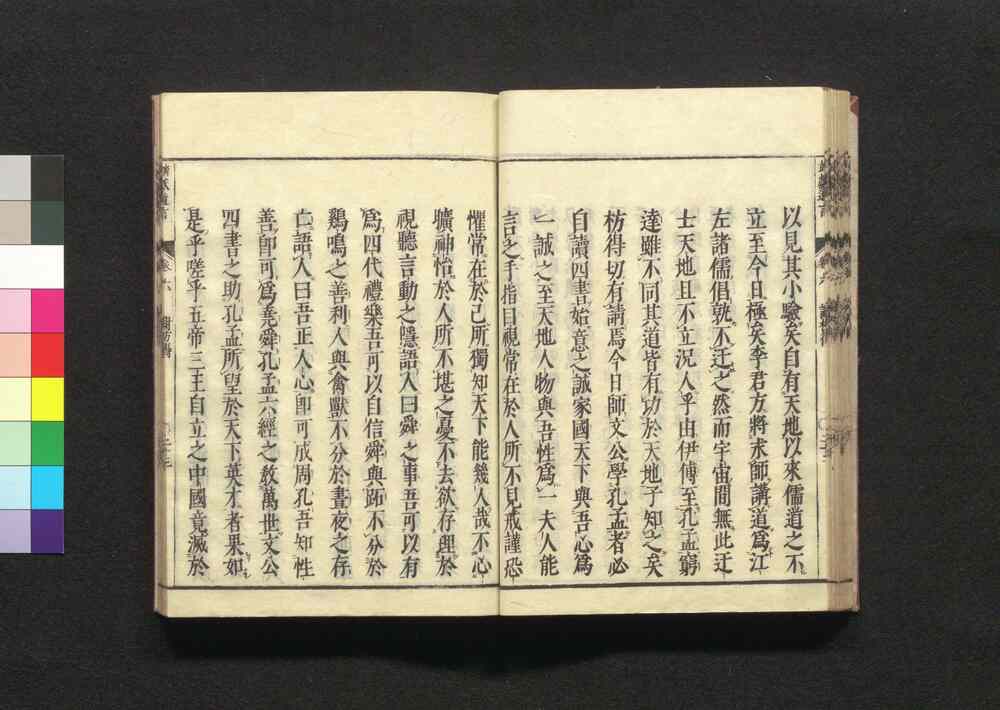 以見其小驗矣自有天地以來儒道之不
立至今日極矣李君方將求師講道爲江
左諸儒倡孰不迂之然而宇宙間無此迂
士天地且不立況人乎由伊傅至孔孟窮
達雖不同其道皆有功於天地予知之矣
枋得切有請焉今日師文公學孔孟者必
自讀四書始意之誠家國天下與吾心爲
一誠之至天地人物與吾性爲一夫人能
言之手指目視常在於人所不見戒謹恐
懼常在於己所獨知天下能幾人哉不心
壙神怡於人所不堪之憂不去欲存理於
視聽言動之隱語人曰舜之事吾可以有
爲四代禮樂吾可以自信舜與跖不分於
鷄鳴之善利人與禽獸不分於晝夜之存
亡語人曰吾正人心卽可成周孔吾知性
善卽可爲堯舜孔孟六經之敎萬世文公
四書之助孔孟所望於天下英才者果如
是乎嗟乎五帝三王自立之中國竟滅於
卷六